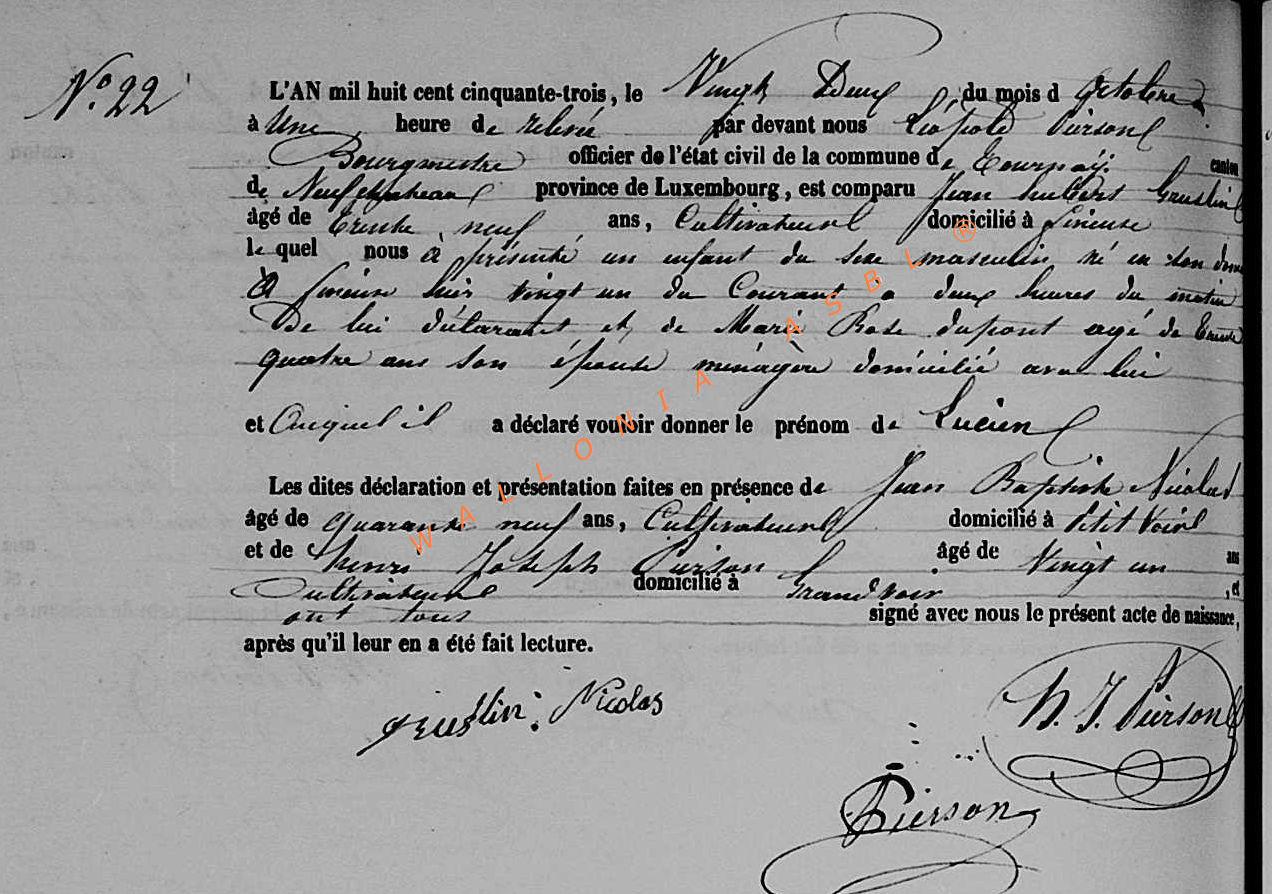 N° 22
L'AN mil huit cent cinquante-trois, le Vingt Deux, du mois d'octobre
à Une heure de relevée par devant nous Léopold Pierson
Bourgmestre officier de l'état civil de la commune de Tournay, canton
de Neufchateau province de Luxembourg, est comparu Jean hubert Gueslin
âgé de Trente neuf ans, Cultivateur domicilié à Lineuse
le quel nous à présenté un enfant du sexe masculin né en son dom
à Lineuse hier vingt un du Courant a deux heures du matin
De lui déclarant et de Marie Rose dupont agé de Trente
quatre ans son épouse ménagère domicilié avec lui
et Auquel il a déclaré vouloir donner le prénom de Lucien
Les dites déclaration et présentation faites en présence de Jean Baptiste Nicolas
âgé de quarante neuf ans, Cultivateur domicilié à Petit Voir
et de henri Joseph Pierson âgé de Vingt un ans
Cultivateur domicilié à Grandvoir, et
ont tous signé avec nous le présent acte de naissance,
après qu'il leur en a été fait lecture.
Gueslin. Nicolas
H. J. Pierson
Pierson
WALLONIA ASBL ®